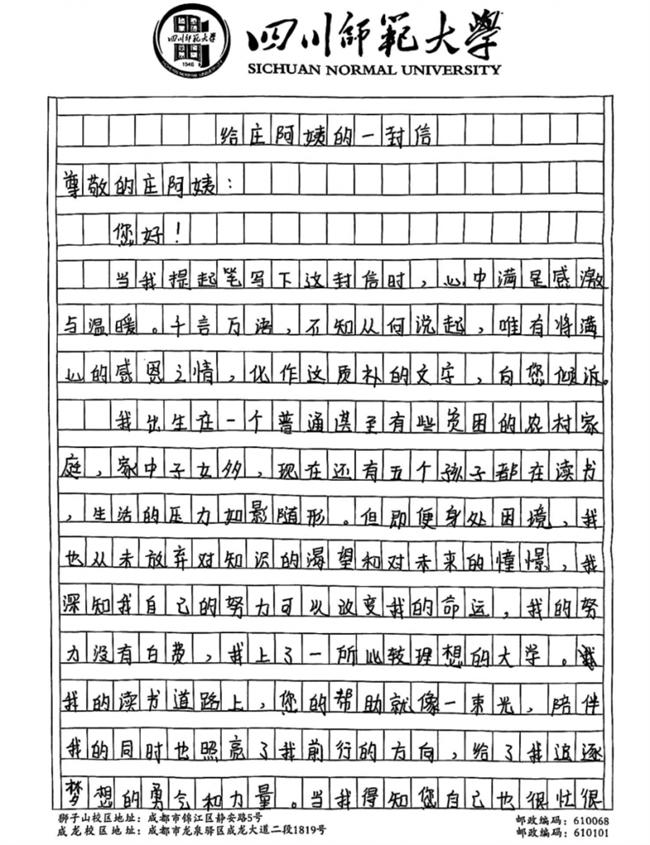 四川师范大学
1946
四川师范大学
SICHUAN NORMAL UNIVERSITY
给庄阿姨的一封信
尊敬的庄阿姨：
您好！
当我提起笔写下这封信时，心中满是感激
与温暖。千言万语，不知从何说起，唯有将满
心的感恩之情，化作这质朴的文字，向您倾诉。
我出生在一个普通甚至有些贫困的农村家
庭，家中子女多，现在还有五个孩子都在读书
，生活的压力如影随形。但即便身处困境，我
也从未放弃对知识的渴望和对未来的憧憬，我
深知我自己的努力可以改变我的命运，我的努
力没有白费，我上了一所比较理想的大学。
我的读书道路上，您的帮助就像一束光，陪伴
我的同时也照亮了我前行的方向，给了我追逐
梦想的勇气和力量。当我得知您自己也很忙很
狮子山校区地址：成都市锦江区静安路5号 邮政编码：610068
成龙校区地址：成都市龙泉驿区成龙大道二段1819号 邮政编码：610101